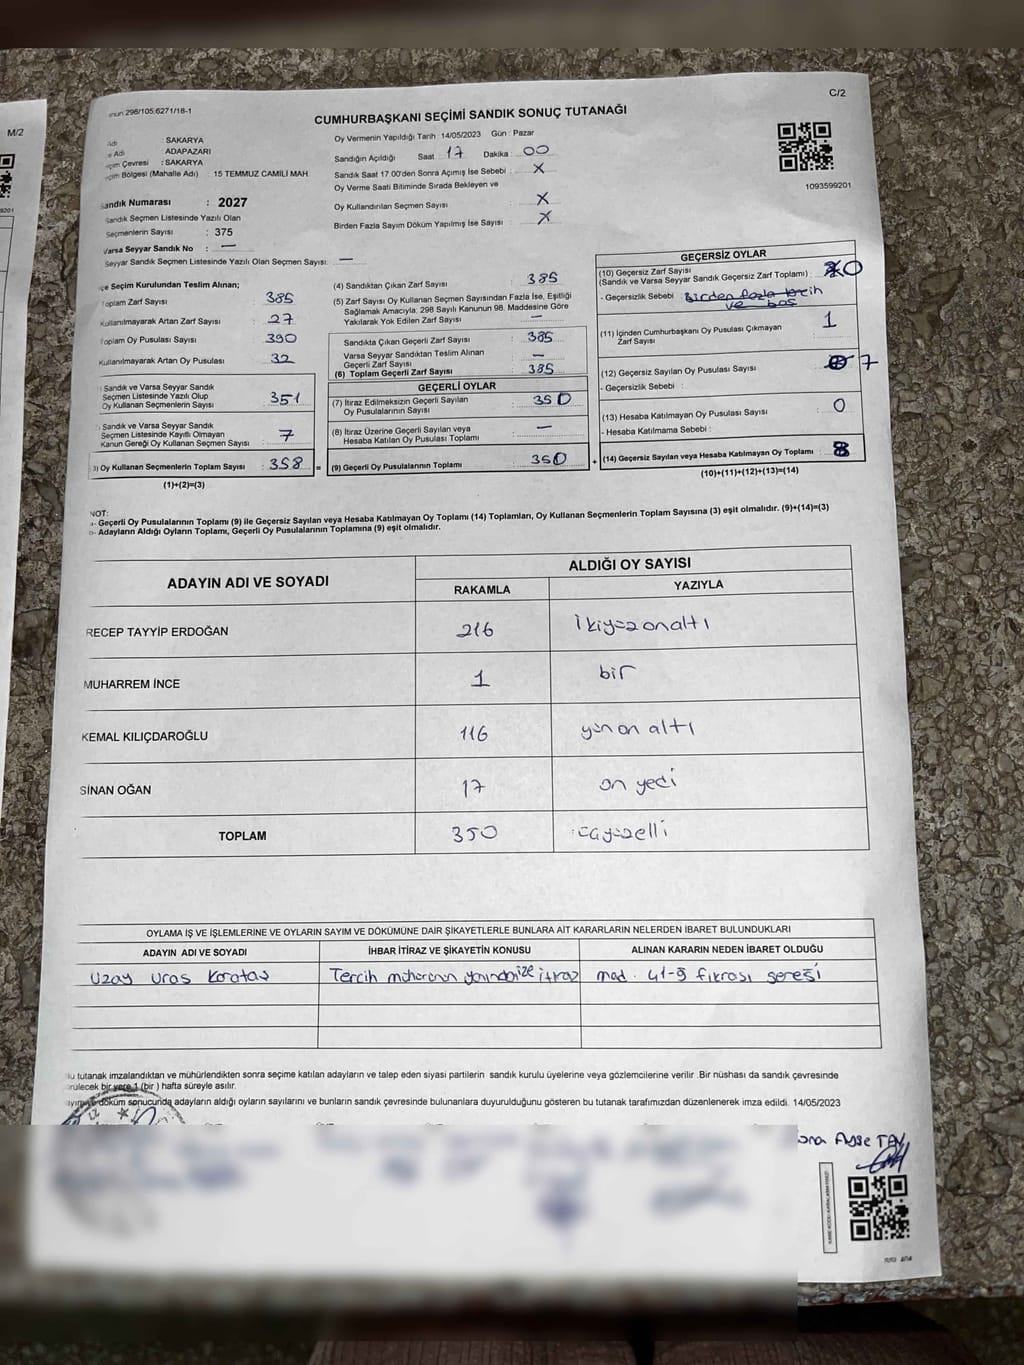 M/2
C/2
CUMHURBAŞKANI SEÇİMİ SANDIK SONUÇ TUTANAĞI
298/105.6271/18-1
: SAKARYA
Adı : ADAPAZARI
Çevresi : SAKARYA
Bölgesi (Mahalle Adı) 15 TEMMUZ CAMİLİ MAH
Sandık Numarası : 2027
Sandık Seçmen Listesinde Yazılı Olan
Seçmenlerin Sayısı : 375
Varsa Seyyar Sandık No : —
Seyyar Sandık Seçmen Listesinde Yazılı Olan Seçmen Sayısı: —
Oy Vermenin Yapıldığı Tarih :14/05/2023 Gün : Pazar
Sandığın Açıldığı Saat : 17 Dakika : 00
Sandık Saat 17.00'den Sonra Açımış İse Sebebi : X
Oy Verme Saati Bitiminde Sırada Bekleyen ve
Oy Kullandırılan Seçmen Sayısı : X
Birden Fazla Sayım Döküm Yapılmış İse Sayısı : X
1093599201
İlçe Seçim Kurulundan Teslim Alınan;
Toplam Zarf Sayısı : 385
Kullanılmayarak Artan Zarf Sayısı : 27
Toplam Oy Pusulası Sayısı : 390
Kullanılmayarak Artan Oy Pusulası : 32
Sandık ve Varsa Seyyar Sandık
Seçmen Listesinde Yazılı Olup
Oy Kullanan Seçmenlerin Sayısı : 351
Sandık ve Varsa Seyyar Sandık
Seçmen Listesinde Kayıtlı Olmayan
Kanun Gereği Oy Kullanan Seçmen Sayısı : 7
3) Oy Kullanan Seçmenlerin Toplam Sayısı : 358 =
(1)+(2)=(3)
(4) Sandıktan Çıkan Zarf Sayısı : 385
(5) Zarf Sayısı Oy Kullanan Seçmen Sayısından Fazla İse, Eşitliği
Sağlamak Amacıyla; 298 Sayılı Kanunun 98. Maddesine Göre
Yakılarak Yok Edilen Zarf Sayısı : —
Sandıkta Çıkan Geçerli Zarf Sayısı : 385
Varsa Seyyar Sandıktan Teslim Alınan
Geçerli Zarf Sayısı : —
(6) Toplam Geçerli Zarf Sayısı : 385
GEÇERLİ OYLAR
(7) İtiraz Edilmeksizin Geçerli Sayılan
Oy Pusulalarının Sayısı : 350
(8) İtiraz Üzerine Geçerli Sayılan veya
Hesaba Katılan Oy Pusulası Toplamı : —
(9) Geçerli Oy Pusulalarının Toplamı : 350 +
GEÇERSİZ OYLAR
(10) Geçersiz Zarf Sayısı
(Sandık ve Varsa Seyyar Sandık Geçersiz Zarf Toplamı) : 0
- Geçersizlik Sebebi : Birden fazla tercih
ve boş
(11) İçinden Cumhurbaşkanı Oy Pusulası Çıkmayan
Zarf Sayısı : 1
(12) Geçersiz Sayılan Oy Pusulası Sayısı : 7
- Geçersizlik Sebebi :
(13) Hesaba Katılmayan Oy Pusulası Sayısı : 0
- Hesaba Katılmama Sebebi :
(14) Geçersiz Sayılan veya Hesaba Katılmayan Oy Toplamı : 8
(10)+(11)+(12)+(13)=(14)
NOT:
- Geçerli Oy Pusulalarının Toplamı (9) ile Geçersiz Sayılan veya Hesaba Katılmayan Oy Toplamı (14) Toplamları, Oy Kullanan Seçmenlerin Toplam Sayısına (3) eşit olmalıdır. (9)+(14)=(3)
- Adayların Aldığı Oyların Toplamı, Geçerli Oy Pusulalarının Toplamına (9) eşit olmalıdır.
ADAYIN ADI VE SOYADI ALDIĞI OY SAYISI
RAKAMLA YAZIYLA
RECEP TAYYİP ERDOĞAN 216 ikiyüzonaltı
MUHARREM İNCE 1 bir
KEMAL KILIÇDAROĞLU 116 yüz on altı
SİNAN OĞAN 17 on yedi
TOPLAM 350 üçyüzelli
OYLAMA İŞ VE İŞLEMLERİNE VE OYLARIN SAYIM VE DÖKÜMÜNE DAİR ŞİKAYETLERLE BUNLARA AİT KARARLARIN NELERDEN İBARET BULUNDUKLARI
ADAYIN ADI VE SOYADI İHBAR İTİRAZ VE ŞİKAYETİN KONUSU ALINAN KARARIN NEDEN İBARET OLDUĞU
Uzay Uras Karataş Tercih mührünün itiraz mad. 41-g fıkrası gereği
Bu tutanak imzalandıktan ve mühürlendikten sonra seçime katılan adayların ve talep eden siyasi partilerin sandık kurulu üyelerine veya gözlemcilerine verilir .Bir nüshası da sandık çevresinde
görülecek bir yere 1 (bir ) hafta süreyle asılır.
döküm sonucunda adayların aldığı oyların sayılarını ve bunların sandık çevresinde bulunanlara duyurulduğunu gösteren bu tutanak tarafımızdan düzenlenerek imza edildi. 14/05/2023
Ayşe TAY